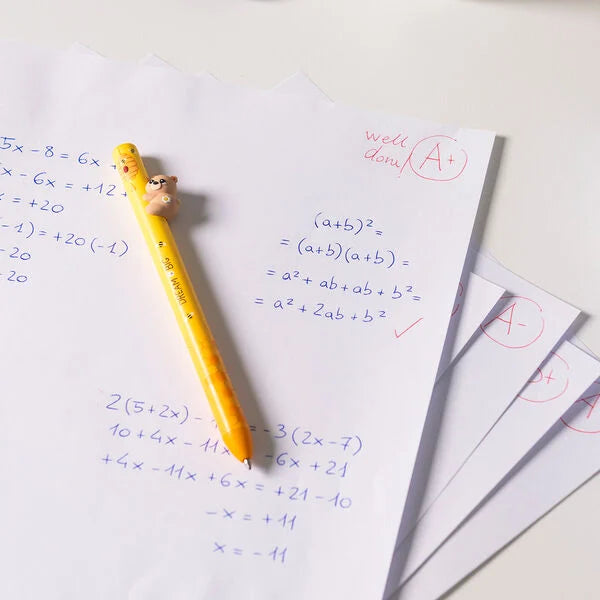 well
done! A+
5x - 8 = 6x +
x - 6x = +12 +
x = +20
-1) = +20 (-1)
-20
-20
(a+b)² =
= (a+b)(a+b) =
= a² + ab + ab + b² =
= a² + 2ab + b²
DREAM · BIG
2(5+2x) - = -3(2x-7)
10 + 4x - 11x -6x + 21
+4x - 11x + 6x = +21 - 10
-x = +11
x = -11
A-
A